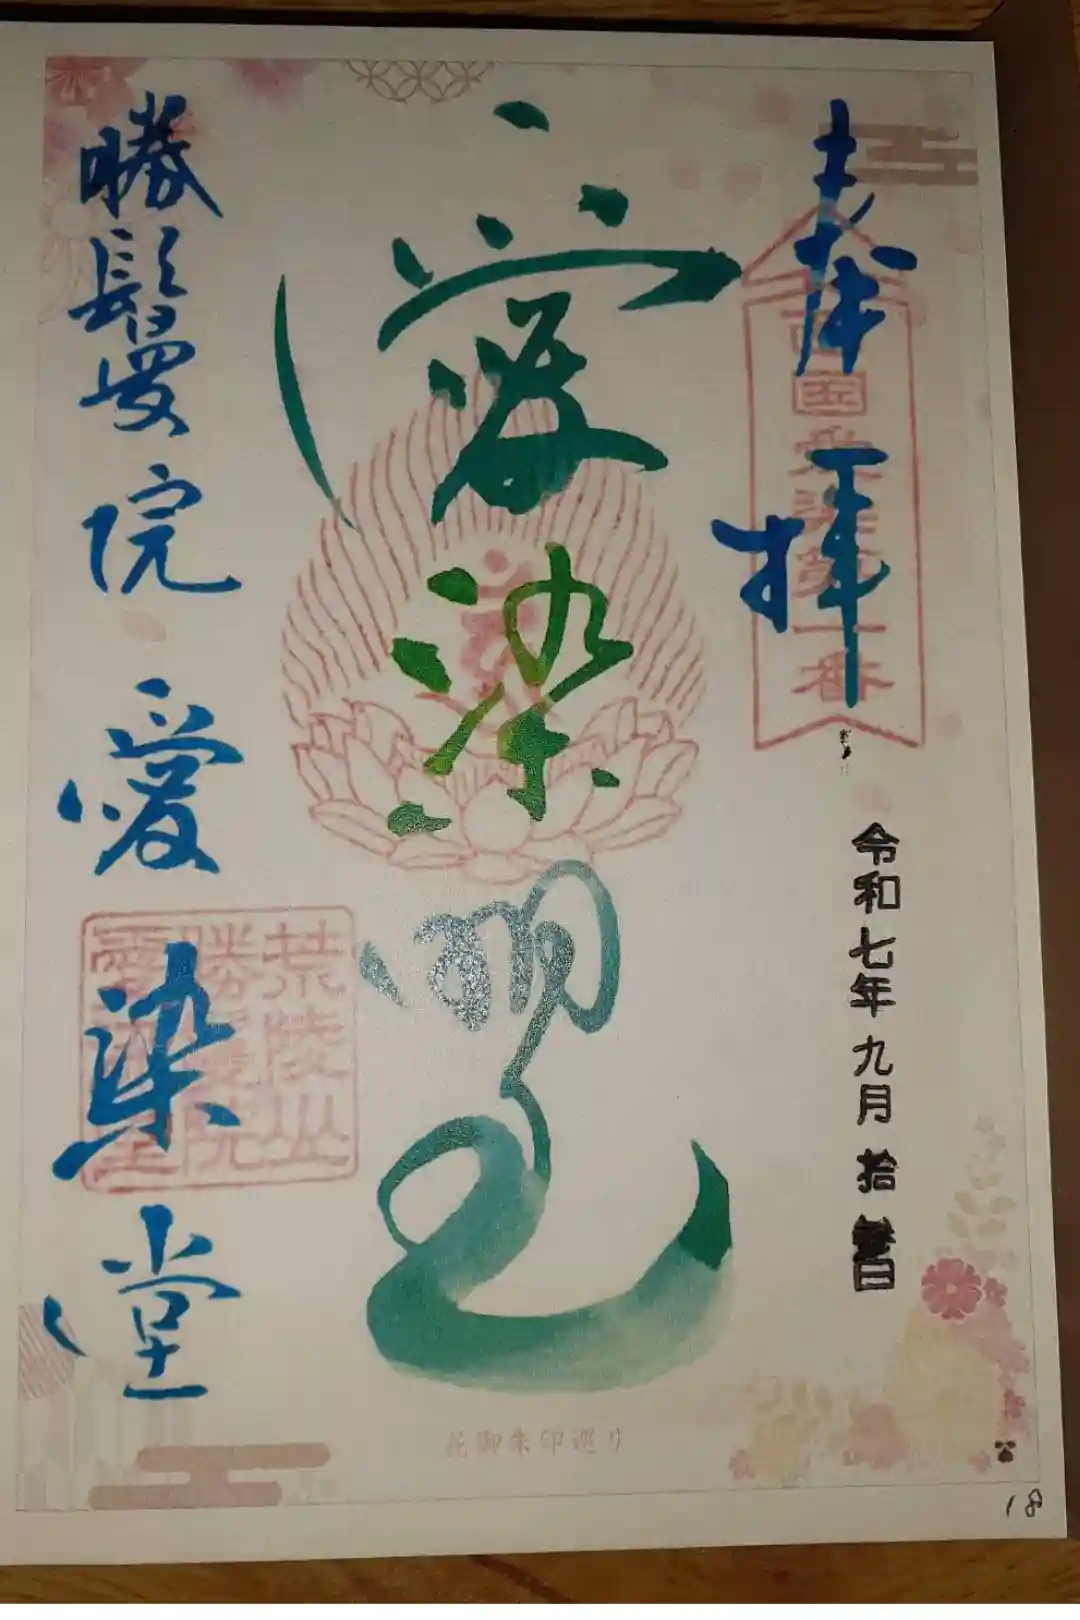 奉拝
西国愛染第一番
令和七年九月拾
愛染明王
荒陵山
勝鬘院
愛染堂
勝鬘院愛染堂
花御朱印巡り
18